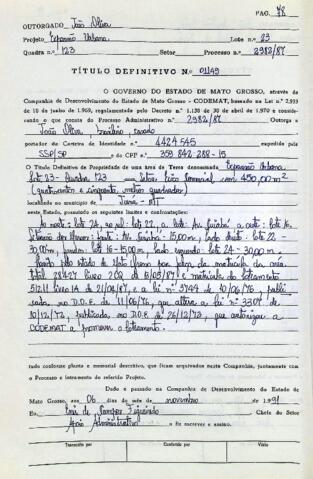 PAG. 78
OUTORGADO João Oliva
Projeto Expansão Urbana Lote n.o 23
Quadra n.o 123 Setor Processo n.o 2982/87
TÍTULO DEFINITIVO N.o 01149
O GOVERNO DO ESTADO DE MATO GROSSO, através da
Companhia de Desenvolvimento do Estado de Mato Grosso - CODEMAT, baseado na Lei n.o
10 de junho de 1969, regulamentada pelo Decreto n.o 1.138 de 30 de abril de 1970 e considerando
o que consta do Processo Administrativo n.o 2982/87 Outorga a
João Oliva, brasileiro, casado
portador da Carteira de Identidade n.o 4424545 expedida pela
SSP/SP e do CPF n.o 359 842 288-15
O Título Definitivo de Propriedade de uma área de Terra denominada Expansão Urbana
lote 23 - Quadra 123 setor comercial com 450,00 m²
(quatrocentos e cinquenta metros quadrados)
localizada no município de
neste Estado, possuindo os seguintes limites e confrontações:
ao norte: lote 24, ao sul: lote 22, a leste: Av. Cuiabá a oeste: lote 16.
frente: Av. Cuiabá - 15,00m, lado direito: lote 22 -
30,00m, fundos lote 16 - 15,00m, lado esquerdo: lote 24 - 30,00m.
matrícula da área
total 28427 livro 2CQ de 15/05/87 e matrícula do loteamento
livro 1A de 21/04/87, e a lei n.o 3744 de 10/06/76, publi
cada, no D.O.E. de 11/06/76, que altera a lei n.o 3307 de
10/12/72, publicada no D.O.E. de 26/12/72, que autoriza a
CODEMAT a promover o loteamento.
tudo conforme planta e memorial descritivo, que ficam arquivados nesta Companhia, juntamente com
o Processo e loteamento do referido Projeto.
Dado e passado na Companhia de Desenvolvimento do Estado de
Mato Grosso, aos 06 dias do mês de novembro de 1991
Eu, de Campos Figueiredo Chefe do Setor
Apoio Administrativo o fiz escrever e assino.
Transcrito por Conferido por Visto